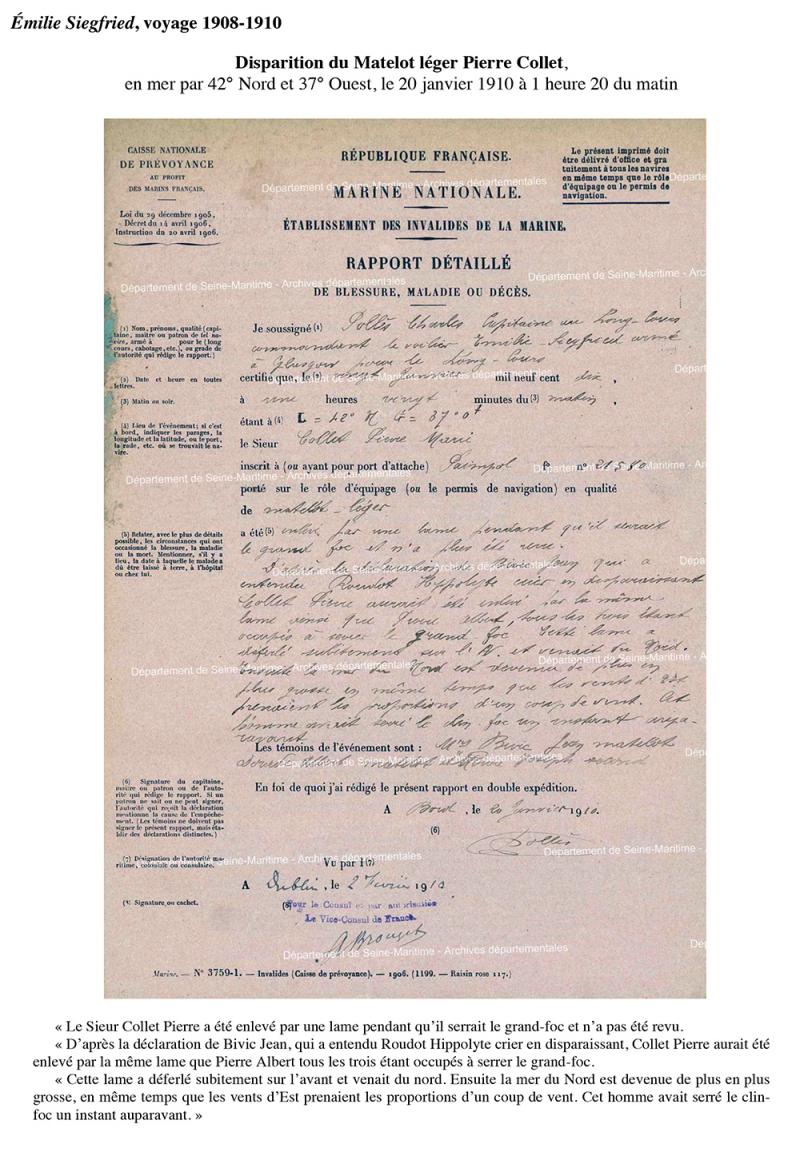 Émilie Siegfried, voyage 1908-1910
Disparition du Matelot léger Pierre Collet,
en mer par 42° Nord et 37° Ouest, le 20 janvier 1910 à 1 heure 20 du matin
CAISSE NATIONALE
DE PRÉVOYANCE
AU PROFIT
DES MARINS FRANÇAIS.
Loi du 29 décembre 1905,
Décret du 14 avril 1906,
Instruction du 20 avril 1906.
RÉPUBLIQUE FRANÇAISE.
MARINE NATIONALE.
ÉTABLISSEMENT DES INVALIDES DE LA MARINE.
Le présent imprimé doit
être délivré d'office et gra
tuitement à tous les navires
en même temps que le rôle
d'équipage ou le permis de
navigation.
Département de Seine-Maritime - Archives départementales
RAPPORT DÉTAILLÉ
DE BLESSURE, MALADIE OU DÉCÈS.
(1) Nom, prénoms, qualité (capi-
taine, maître ou patron de tel na-
vire, armé à pour le (long
cours, cabotage, etc.), ou grade de
l'autorité qui rédige le rapport.)
(2) Date et heure en toutes
lettres.
(3) Matin ou soir.
(4) Lieu de l'événement; si c'est
à bord, indiquer les parages, la
longitude et la latitude, ou le port,
la rade, etc. où se trouvait le na-
vire.
(5) Relater, avec le plus de détails
possible, les circonstances qui ont
occasionné la blessure, la maladie
ou la mort. Mentionner, s'il y a
lieu, la date à laquelle le malade a
dû être laissé à terre, à l'hôpital
ou chez lui.
Je soussigné (1) Pollès Charles Capitaine au Long-Cours
commandant le voilier Emilie Siegfried armé
à Glasgow pour le Long-Cours
certifie que, le (2) vingt janvier mil neuf cent dix,
à une heures vingt minutes du (3) matin,
étant à (4) L = 42° N G = 37° 0t
le Sieur Collet Pierre Marie
inscrit à (ou ayant pour port d'attache) Paimpol n°
porté sur le rôle d'équipage (ou le permis de navigation) en qualité
de matelot-léger
a été (5) enlevé par une lame pendant qu'il serrait
le grand foc et n'a plus été revu.
D'après la déclaration de Bivic Jean qui a
entendu Roudot Hippolyte crier en disparaissant
Collet Pierre aurait été enlevé par la même
lame ainsi que Pierre Albert, tous les trois étant
occupés à serrer le grand foc. Cette lame a
déferlé subitement sur l'N. et venait du Nord.
Ensuite la mer du Nord est devenue de plus en
plus grosse en même temps que les vents d'Est
prenaient les proportions d'un coup de vent. Cet
homme avait serré le clin foc un instant aupa-
ravant.
Les témoins de l'événement sont : Mrs Bivic Jean matelot
matelot second
(6) Signature du capitaine,
maître ou patron ou de l'auto-
rité qui rédige le rapport. Si un
patron ne sait ou ne peut signer,
l'autorité qui reçoit la déclaration
mentionne la cause de l'empêche-
ment. (Les témoins ne doivent pas
signer le présent rapport, mais éta-
blir des déclarations distinctes.)
En foi de quoi j'ai rédigé le présent rapport en double expédition.
A Bord, le 20 Janvier 1910.
(6)
Pollès
(7) Désignation de l'autorité ma-
ritime, coloniale ou consulaire.
Vu par (7)
A Dublin, le 2 Février 1910
(8) Signature ou cachet.
(8) Pour le Consul et par autorisation
Le Vice-Consul de France.
Marine. — N° 3759-1. — Invalides (Caisse de prévoyance). — 1906. (1199. — Raisin rose 117.)
« Le Sieur Collet Pierre a été enlevé par une lame pendant qu'il serrait le grand-foc et n'a pas été revu.
« D'après la déclaration de Bivic Jean, qui a entendu Roudot Hippolyte crier en disparaissant, Collet Pierre aurait été
enlevé par la même lame que Pierre Albert tous les trois étant occupés à serrer le grand-foc.
« Cette lame a déferlé subitement sur l'avant et venait du nord. Ensuite la mer du Nord est devenue de plus en plus
grosse, en même temps que les vents d'Est prenaient les proportions d'un coup de vent. Cet homme avait serré le clin-
foc un instant auparavant. »